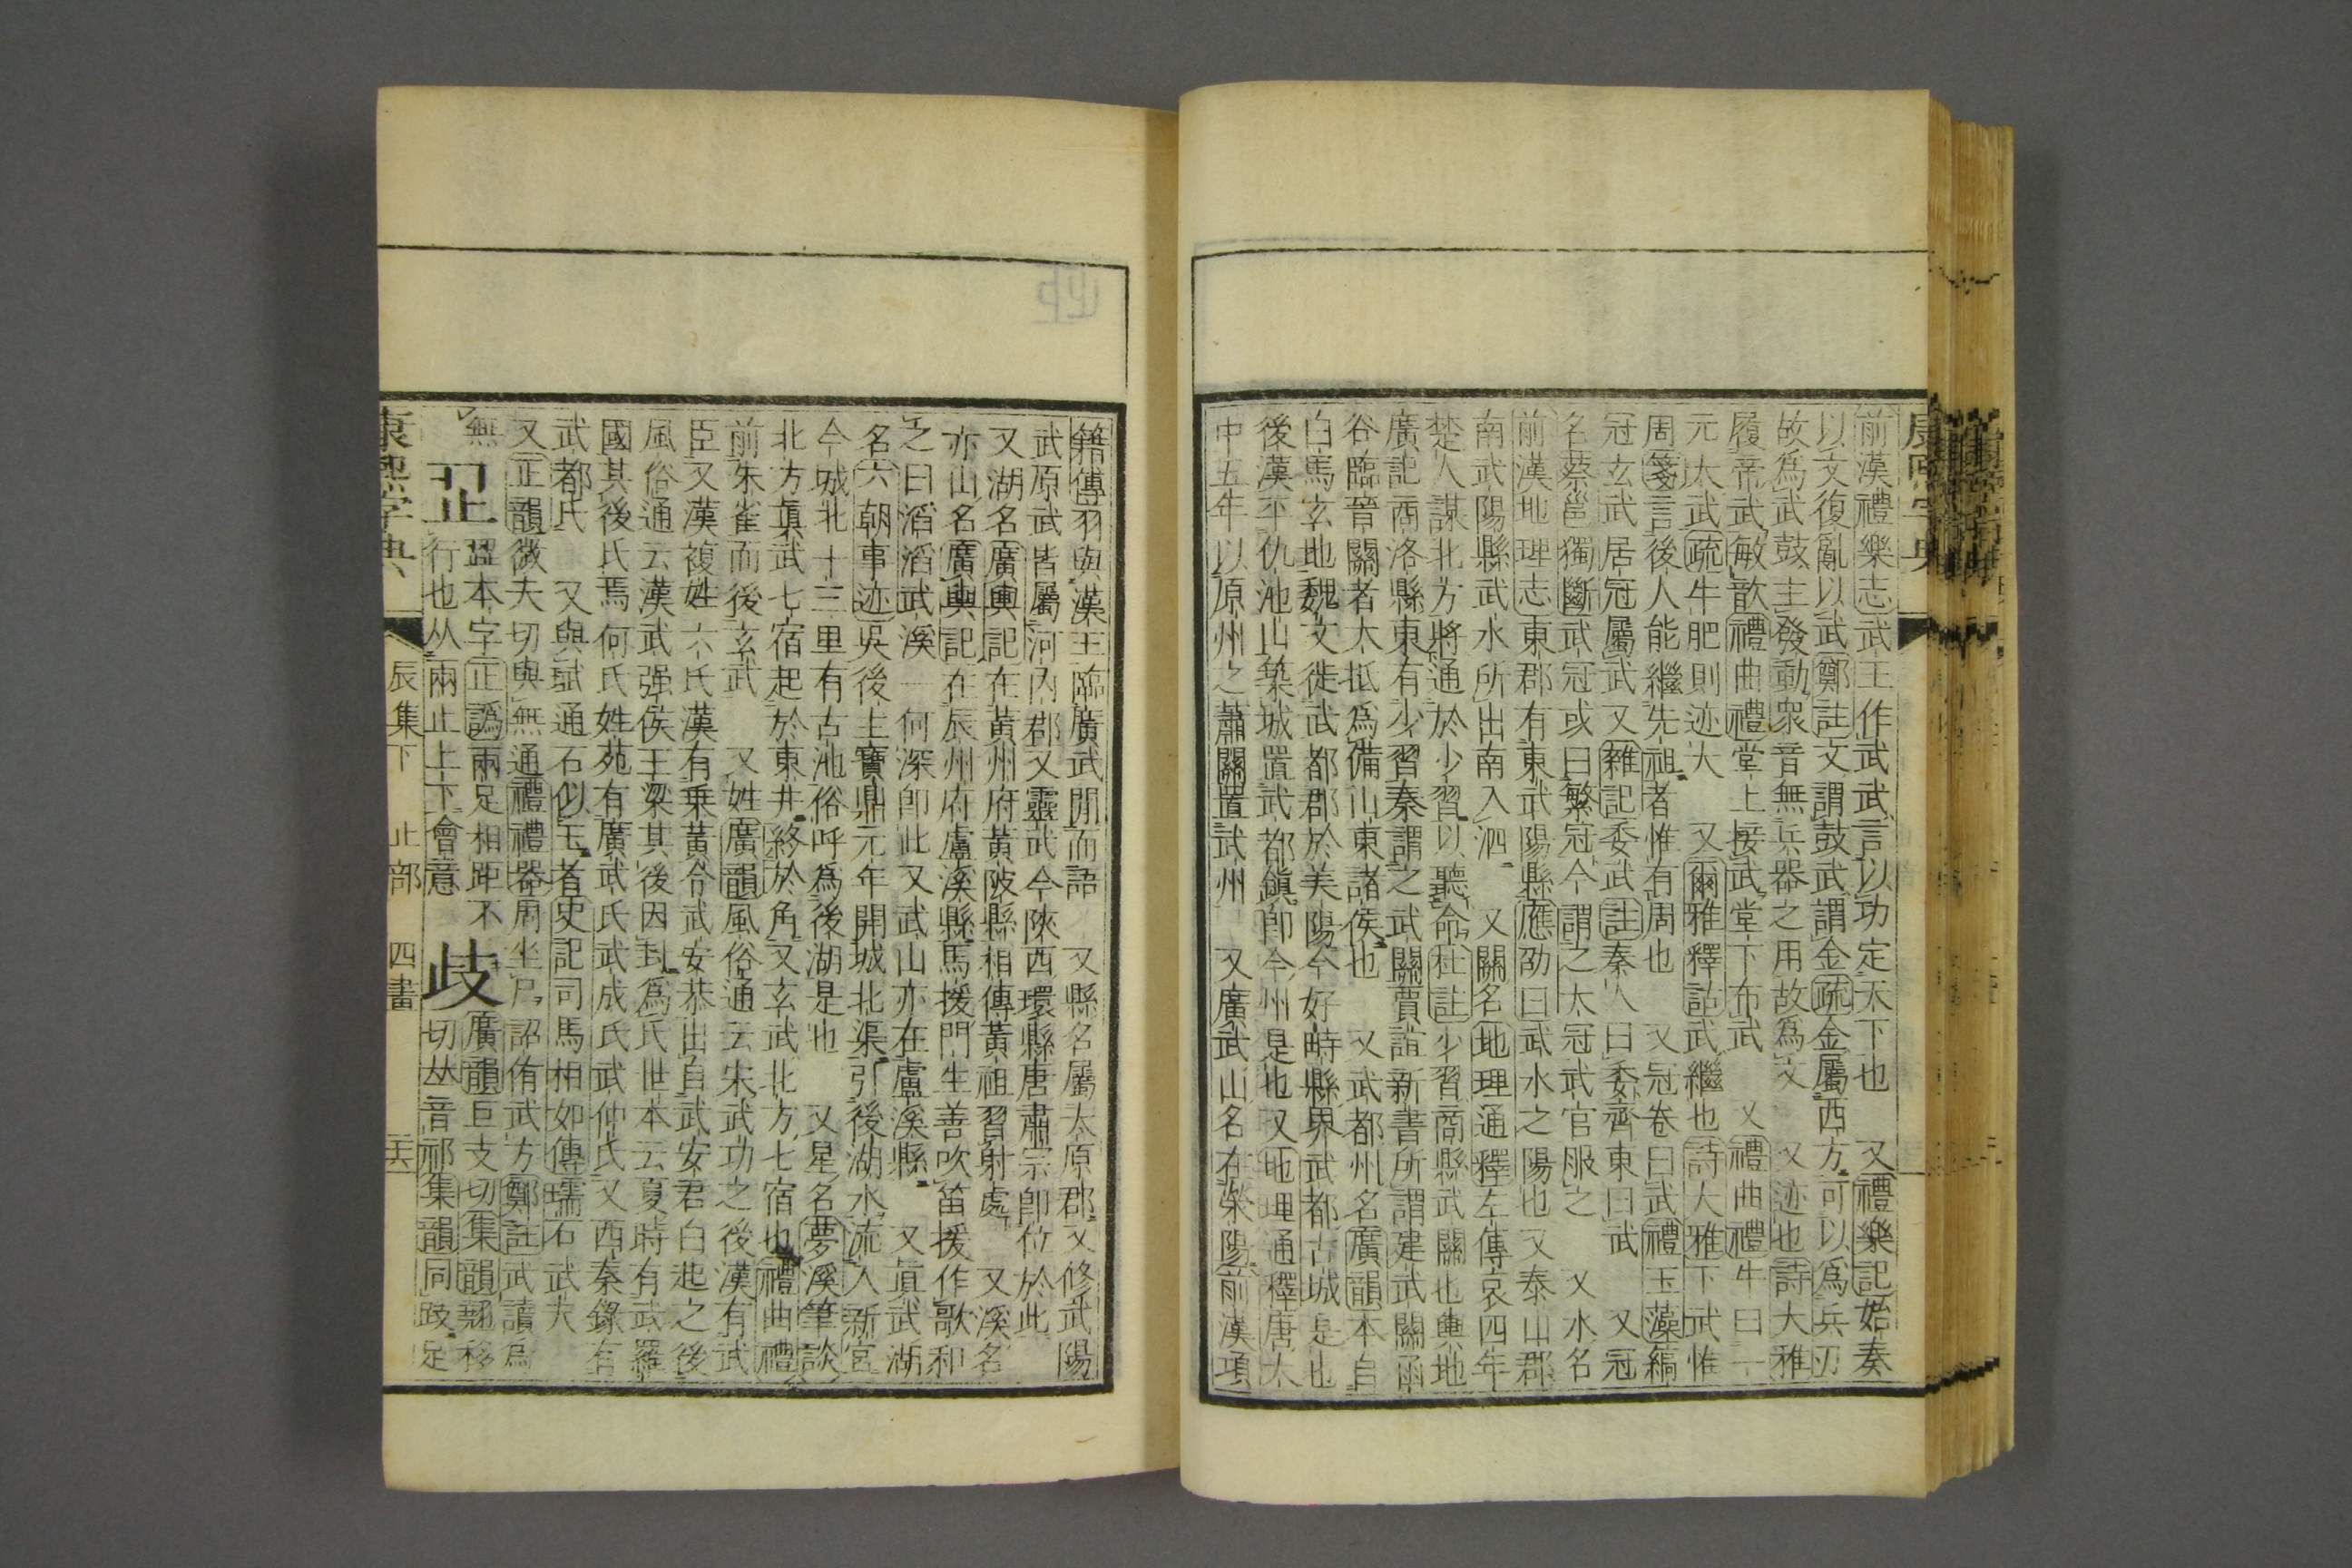 前漢禮樂志武王作武武言以功定天下也　又禮樂記始奏
以文復亂以武鄭註文謂鼓武謂金疏金屬西方可以爲兵刃
故爲武鼓主發動衆音無兵器之用故爲文　又迹也詩大雅
履帝武敏歆禮曲禮堂上接武堂下布武　又禮曲禮牛曰一
元大武疏牛肥則迹大　又爾雅釋詁武繼也詩大雅下武惟
周箋言後人能繼先祖者惟有周也　又冠卷曰武禮玉藻縞
冠玄武居冠屬武又雜記委武註秦人曰委齊東曰武　又冠
名蔡邕獨斷武冠或曰繁冠今謂之大冠武官服之　又水名
前漢地理志東郡有東武陽縣應劭曰武水之陽也又泰山郡
南武陽縣武水所出南入泗　又關名地理通釋左傳哀四年
楚人謀北方將通於少習以聽命杜註少習商縣武關也輿地
廣記商洛縣東有少習秦謂之武關賈誼新書所謂建武關函
谷臨晉關者大抵爲備山東諸侯也　又武都州名廣韻本自
白馬玄地魏文徙武都郡於美陽今好畤縣界武都古城是也
後漢平仇池山築城置武都鎭卽今州是也又地理通釋唐大
中五年以原州之蕭關置武州　又廣武山名在滎陽前漢項
籍傳羽與漢王臨廣武閒而語　又縣名屬太原郡又修武陽
武原武皆屬河內郡又靈武今陝西環縣唐肅宗卽位於此
又湖名廣輿記在黃州府黃陂縣相傳黃祖習射處　又溪名
亦山名廣輿記在辰州府盧溪縣馬援門生善吹笛援作歌和
之曰滔滔武溪一何深卽此又武山亦在盧溪縣　又眞武湖
名六朝事迹吳後主寶鼎元年開城北渠引後湖水流入新宮
今城北十三里有古池俗呼爲後湖是也　又星名夢溪筆談
北方眞武七宿起於東井終於角又玄武北方七宿也禮曲禮
前朱雀而後玄武　又姓廣韻風俗通云宋武功之後漢有武
臣又漢複姓六氏漢有乗黃令武安恭出自武安君白起之後
風俗通云漢武强侯王梁其後因封爲氏世本云夏時有武羅
國其後氏焉何氏姓苑有廣武氏武成氏武仲氏又西秦錄有
武都氏　又與珷通石似玉者史記司馬相如傳瑌石武夫
又正韻微夫切與無通禮禮器周坐尸詔侑武方鄭註武讀爲
無
𣥂 𣥂本字正譌兩足相距不行也从兩止上下會意
歧 廣韻巨支切集韻翹移切𠀤音祁集韻同跂足
康熙字典　辰集下　止部　四畫　二六